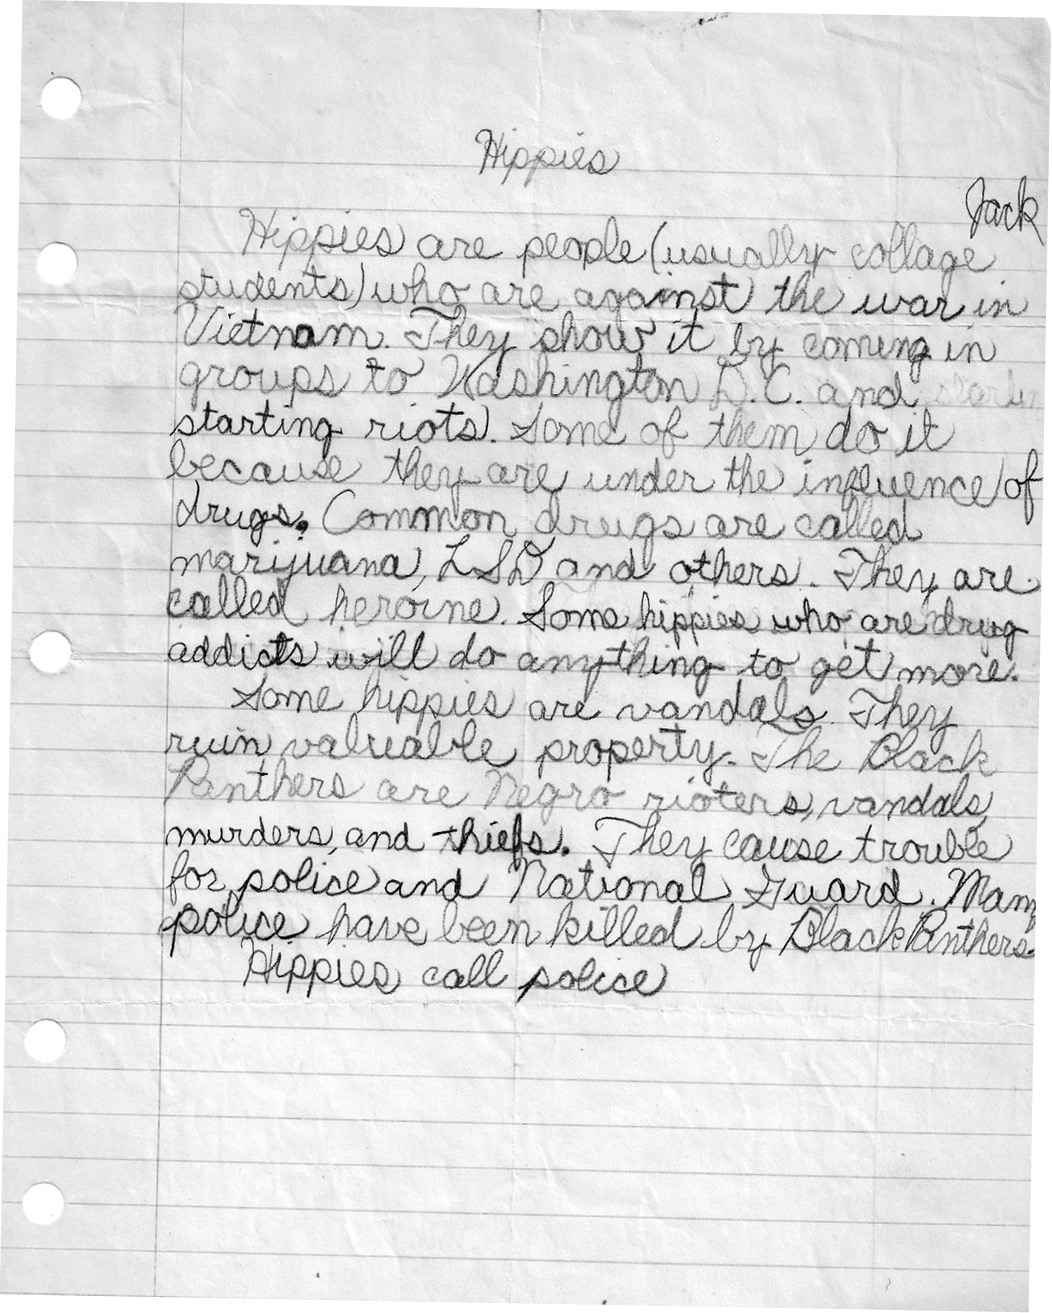 Hippies
Jack
Hippies are people (usually collage
students) who are against the war in
Vietnam. They show it by coming in
groups to Washington D.C. and
starting riots. Some of them do it
because they are under the influence of
drugs. Common drugs are called
marijuana, LSD and others. They are
called heroine. Some hippies who are drug
addicts will do anything to get more.
Some hippies are vandals. They
ruin valuable property. The Black
Panthers are Negro rioters, vandals,
murders, and thiefs. They cause trouble
for police and National Guard. Many
police have been killed by Black Panthers.
Hippies call police